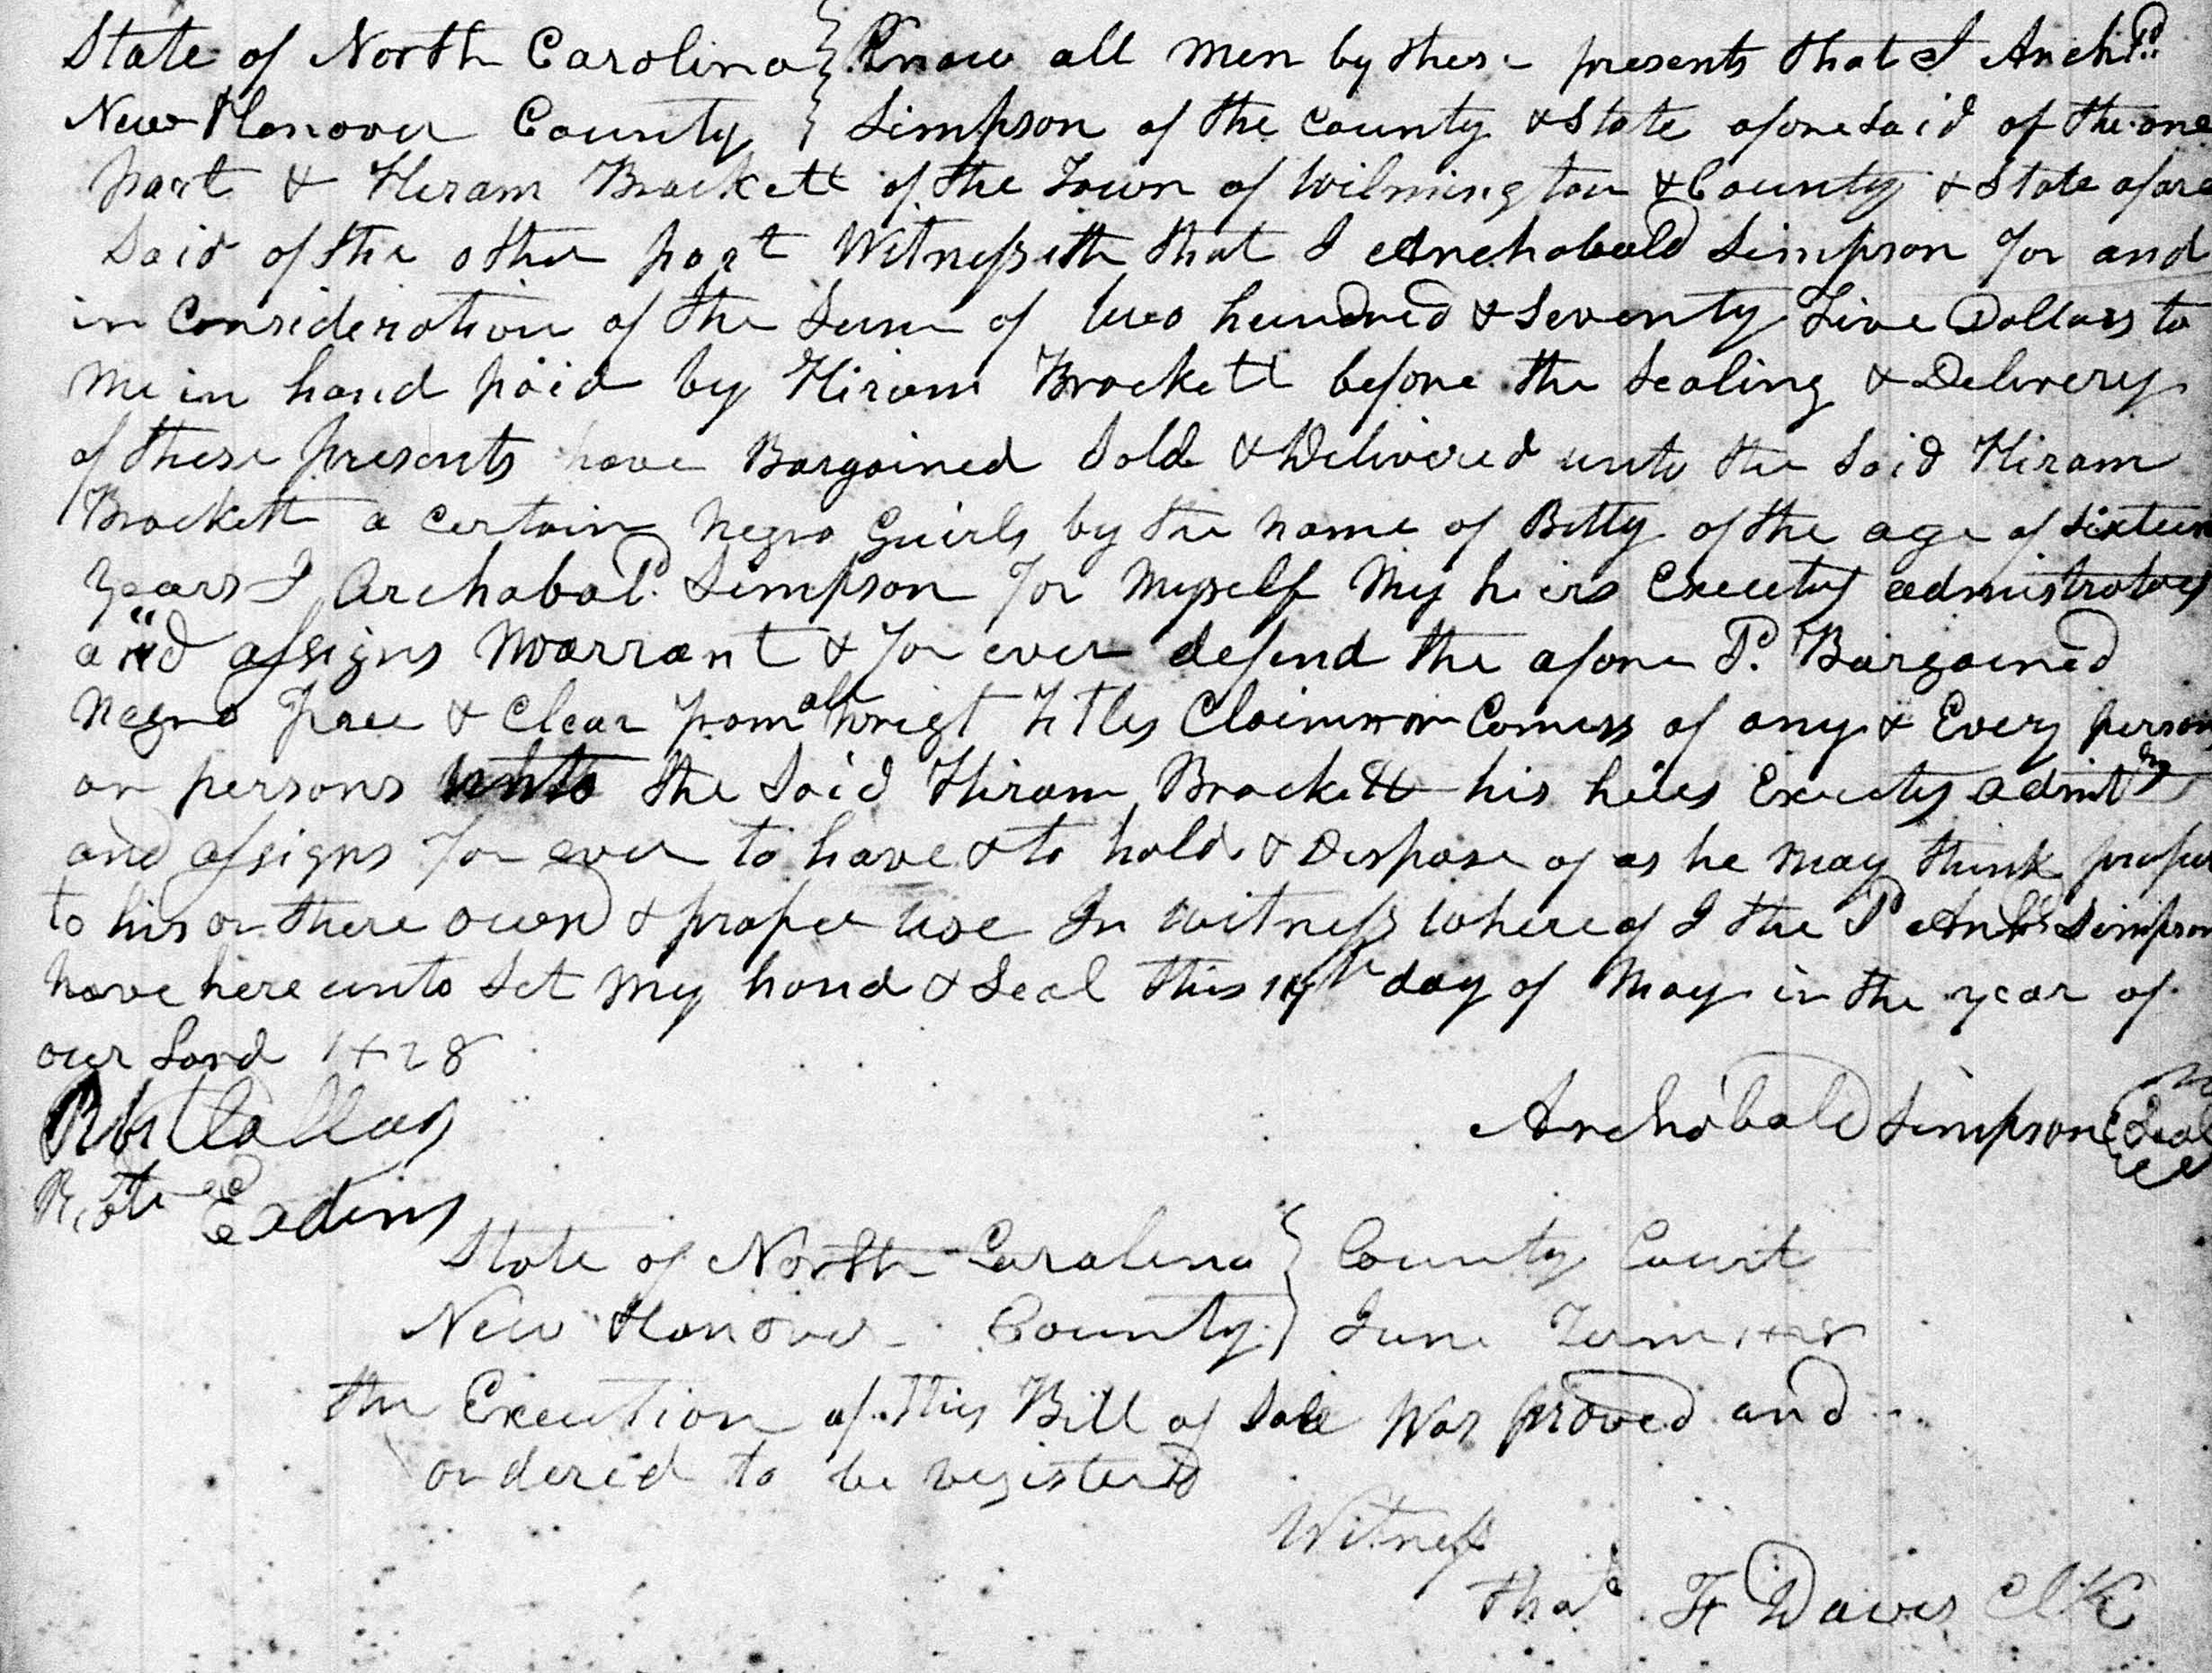 State of North Carolina } Know all men by these presents that I Archd.
New Hanover County } Simpson of the county & State aforesaid of the one
part & Hiram Brackett of the Town of Wilmington & County & State afore
Said of the other part Witnesseth that I Archabald Simpson for and
in Consideration of the Sum of two hundred & Seventy Five Dollars to
me in hand paid by Hiram Brackett before the Sealing & Delivery
of these presents have Bargained Sold & Delivered unto the Said Hiram
Brackett a Certain Negro Guirls by the name of Betty of the age of Sixteen
years I Archabald Simpson for myself my heirs Executs admistrators
and assigns Warrant & for ever defend the afore Sd. Bargained
Negro free & Clear from all wright titles Claim of any & Every person
or persons unto the Said Hiram Brackett his heirs Executs admt
and assigns for ever to have & to hold & Dispose of as he may think proper
to his or there own & proper use In Witness Whereof I the Sd Simpson
have here unto Set my hand & Seal this day of May in the year of
our Lord 1828
Archabald Simpson Seal
State of North Carolina } County Court
New Hanover County } June Term 1828
the Execution of this Bill of Sale Was proved and
ordered to be registered
Witness
F Davis Clk